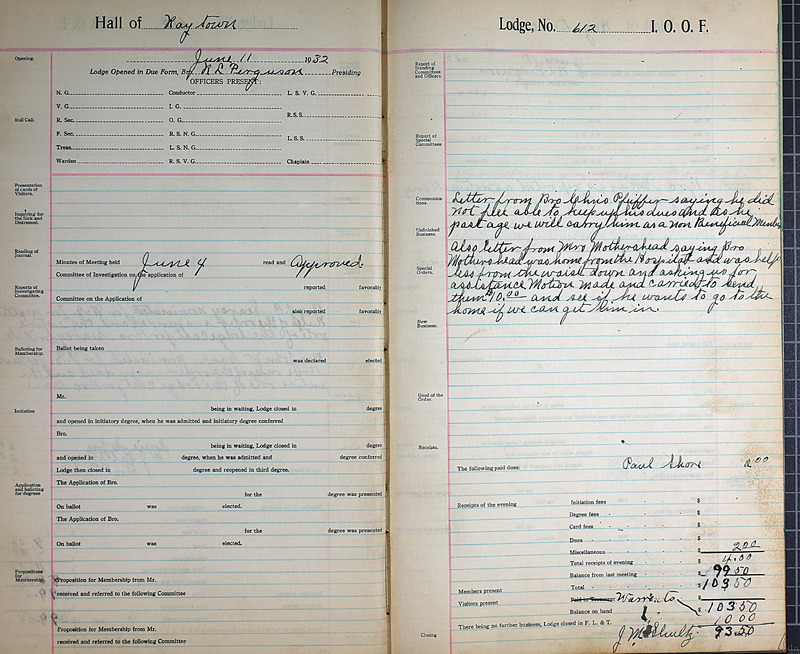 Hall of Raytown
June 11 1932
Opening.
Lodge Opened in Due Form, By R L Ferguson Presiding
OFFICERS PRESENT:
N. G. Conductor L. S. V. G.
V. G. I. G.
R. S. S.
Roll Call.
R. Sec. O. G.
F. Sec. R. S. N. G.
L. S. S.
Treas. L. S. N. G.
Warden R. S. V. G. Chaplain
Presentation
of cards of
Visitors.
Inquiring for
the Sick and
Distressed.
Reading of
Journal.
Minutes of Meeting held June 4 read and Approved.
Committee of Investigation on the application of
reported favorably
Reports of
Investigating
Committee.
Committee on the Application of
also reported favorably
Balloting for
Membership.
Ballot being taken
was declared elected
Mr.
Initiation
being in waiting, Lodge closed in degree
and opened in initiatory degree, when he was admitted and initiatory degree conferred
Bro.
being in waiting, Lodge closed in degree
and opened in degree, when he was admitted and degree conferred
Lodge then closed in degree and reopened in third degree.
Application
and balloting
for degrees
The Application of Bro.
for the degree was presented
On ballot was elected.
The Application of Bro.
for the degree was presented
On ballot was elected.
Propositions
for
Membership
Proposition for Membership from Mr.
received and referred to the following Committee
Proposition for Membership from Mr.
received and referred to the following Committee
Lodge, No. 612 I. O. O. F.
Report of
Standing
Committees
and Officers.
Report of
Special
Committees
Communica-
tions.
Letter from Bro Chris Pfeiffer saying he did
not feel able to keep up his dues and as he
past age we will carry him as a non Beneficial Member
Unfinished
Business.
Also letter from Mrs Mothershead saying Bro
Mothershead was home from the Hospital and was help
Special
Orders.
less from the waist down and asking us for
assistance Motion made and carried to send
them $10.00 and see if he wants to go to the
home if we can get him in.
New
Business.
Good of the
Order.
Receipts.
The following paid dues: Paul Shore 2 00
Receipts of the evening Initiation fees $
Degree fees $
Card fees $
Dues $
Miscellaneous $ 2 00
Total receipts of evening $ 4.00
Balance from last meeting $ 99 50
Members present Total $ 103 50
Visitors present Warrants
Balance on hand $ 103 50
There being no further business, Lodge closed in F. L. & T. 10 00
Closing J M Shultz 93.50